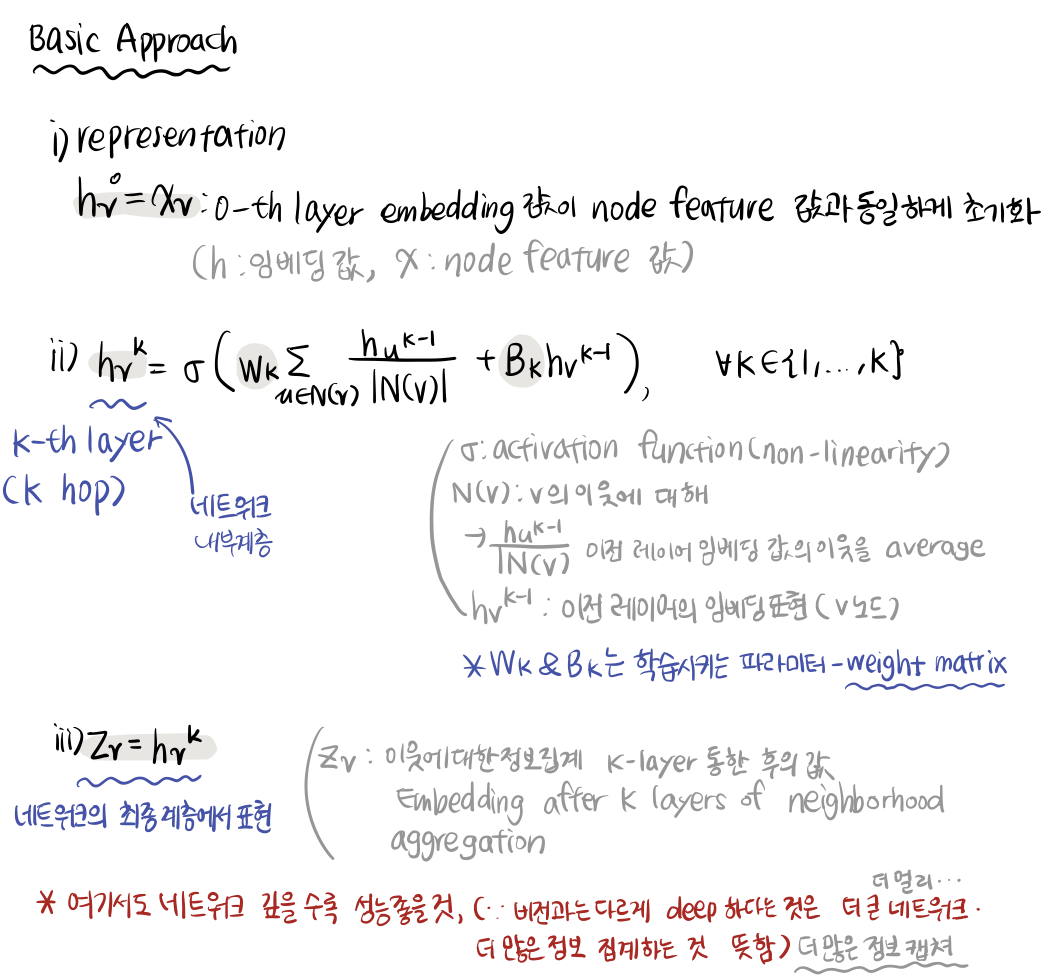 Basic Approach
i) representation
hᵥ⁰ = xᵥ : 0-th layer embedding 값이 node feature 값과 동일하게 초기화
(h : 임베딩 값, x : node feature 값)
ii) hᵥᵏ = σ ( Wₖ Σ_{u∈N(v)} hᵤᵏ⁻¹ / |N(v)| + Bₖ hᵥᵏ⁻¹ ), ∀k∈{1,...,K}
k-th layer
(k hop)
네트워크
내부계층
σ: activation function (non-linearity)
N(v) : v의 이웃에 대해
→ hᵤᵏ⁻¹ / |N(v)| 이전 레이어 임베딩 값의 이웃을 average
hᵥᵏ⁻¹ : 이전 레이어의 임베딩 표현 (v노드)
* Wₖ & Bₖ는 학습시키는 파라미터 - weight matrix
iii) Zᵥ = hᵥᴷ
네트워크의 최종 계층에서 표현
Zᵥ : 이웃에대한정보집계 K-layer 통한 후의 값
Embedding after K layers of neighborhood
aggregation
더 멀리...
* 여기서도 네트워크 깊을 수록 성능좋을것, (∵ 비전과는 다르게 deep 하다는 것은 더 큰 네트워크.
더 많은 정보 집계하는 것 뜻함) 더 많은 정보 캡쳐